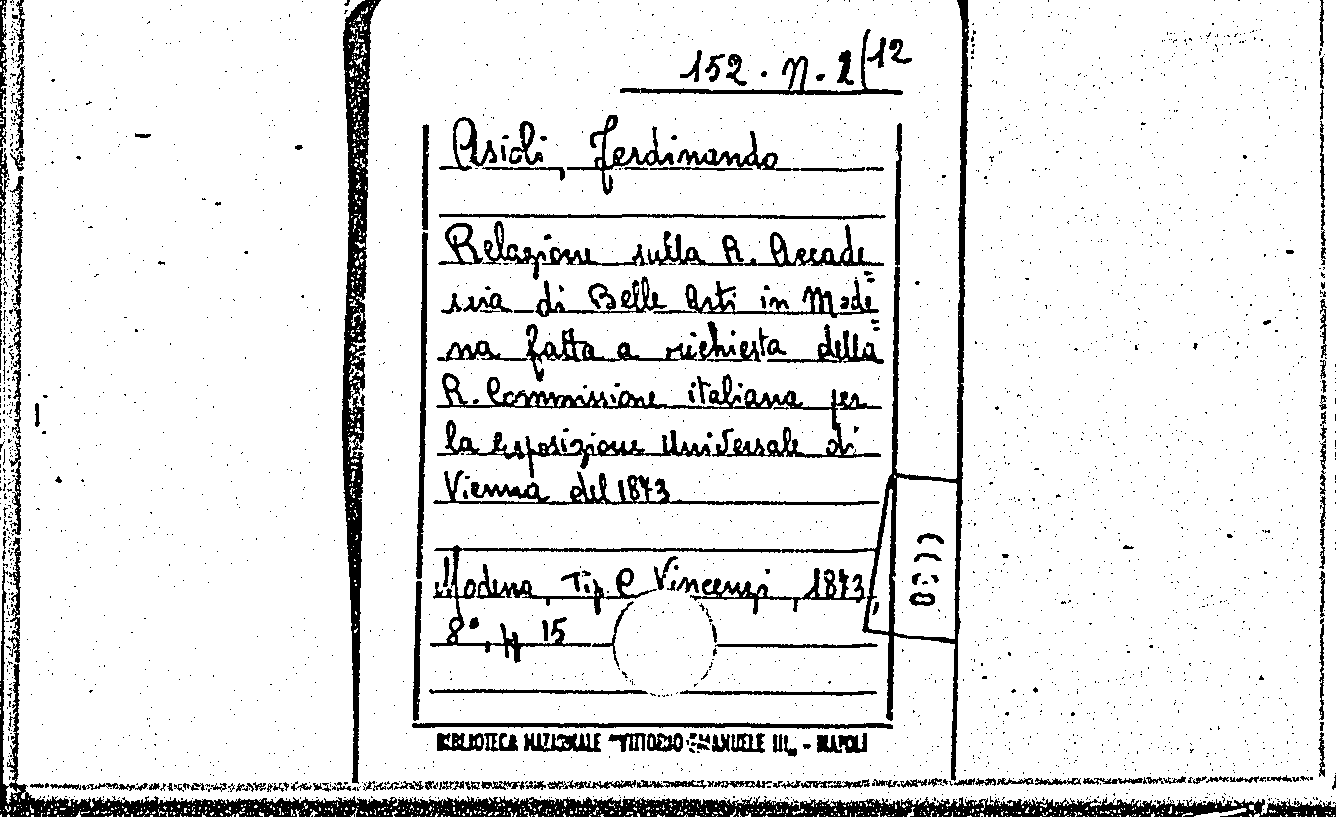 152. N. 2(12
Asioli, Ferdinando
Relazione sulla R. Accade=
mia di Belle Arti in Mode=
na fatta a richiesta della
R. Commissione italiana per
la esposizione Universale di
Vienna del 1873
Modena, Tip. C. Vincenzi, 1873,
8°, pp 15
BIBLIOTECA NAZIONALE "VITTORIO EMANUELE III„ - NAPOLI